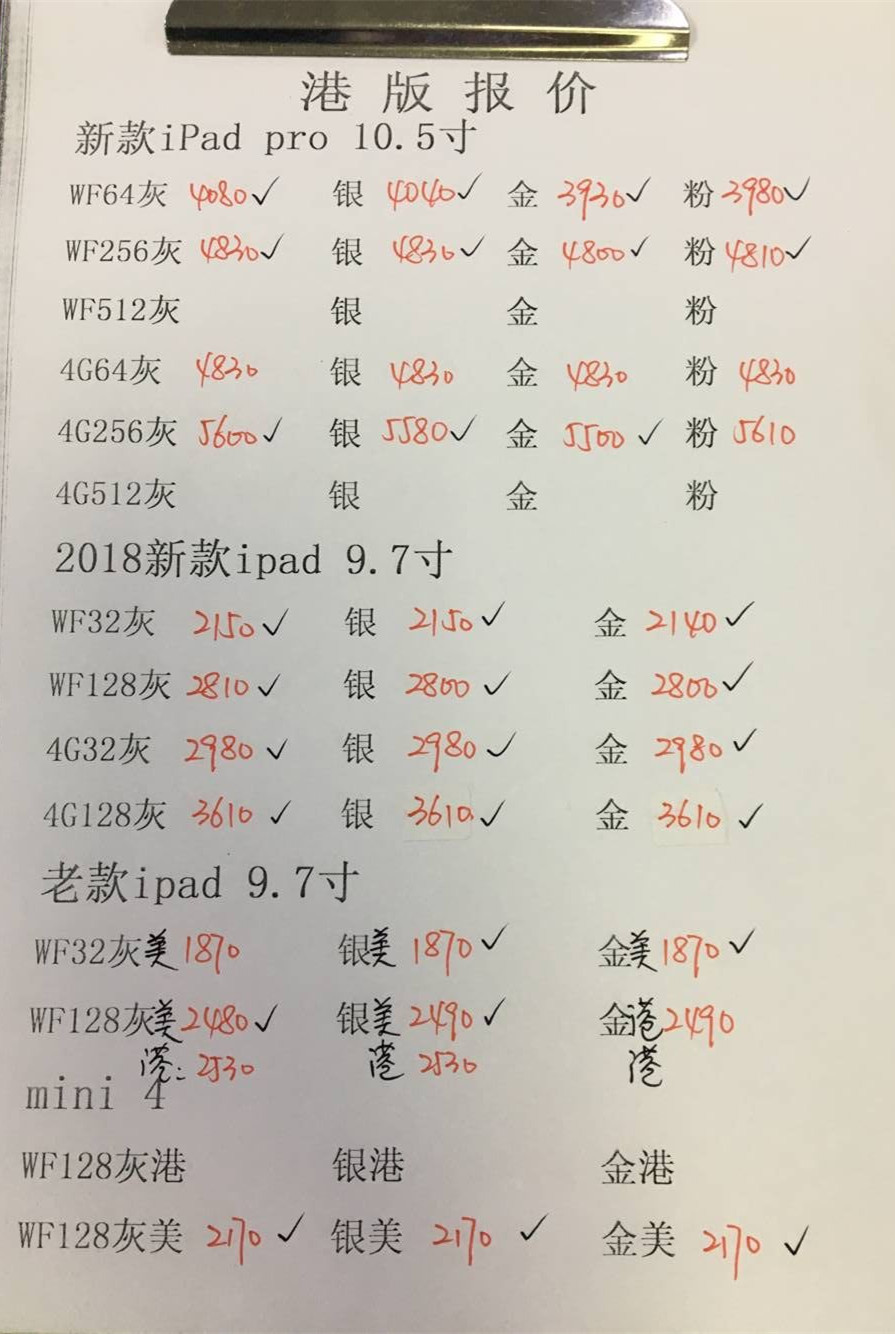 港版报价
新款iPad pro 10.5寸
WF64灰 4080✓ 银 4040✓ 金 3930✓ 粉 3980✓
WF256灰 4830✓ 银 4830✓ 金 4800✓ 粉 4810✓
WF512灰 银 金 粉
4G64灰 4830 银 4830 金 4830 粉 4830
4G256灰 5600✓ 银 5580✓ 金 5500✓ 粉 5610
4G512灰 银 金 粉
2018新款ipad 9.7寸
WF32灰 2150✓ 银 2150✓ 金 2140✓
WF128灰 2810✓ 银 2800✓ 金 2800✓
4G32灰 2980✓ 银 2980✓ 金 2980✓
4G128灰 3610✓ 银 3610✓ 金 3610✓
老款ipad 9.7寸
WF32灰美 1870 银美 1870✓ 金美 1870✓
WF128灰美 2480✓ 银美 2490✓ 金港 2490
港: 2530 港 2530 港
mini 4
WF128灰港 银港 金港
WF128灰美 2170✓ 银美 2170✓ 金美 2170✓